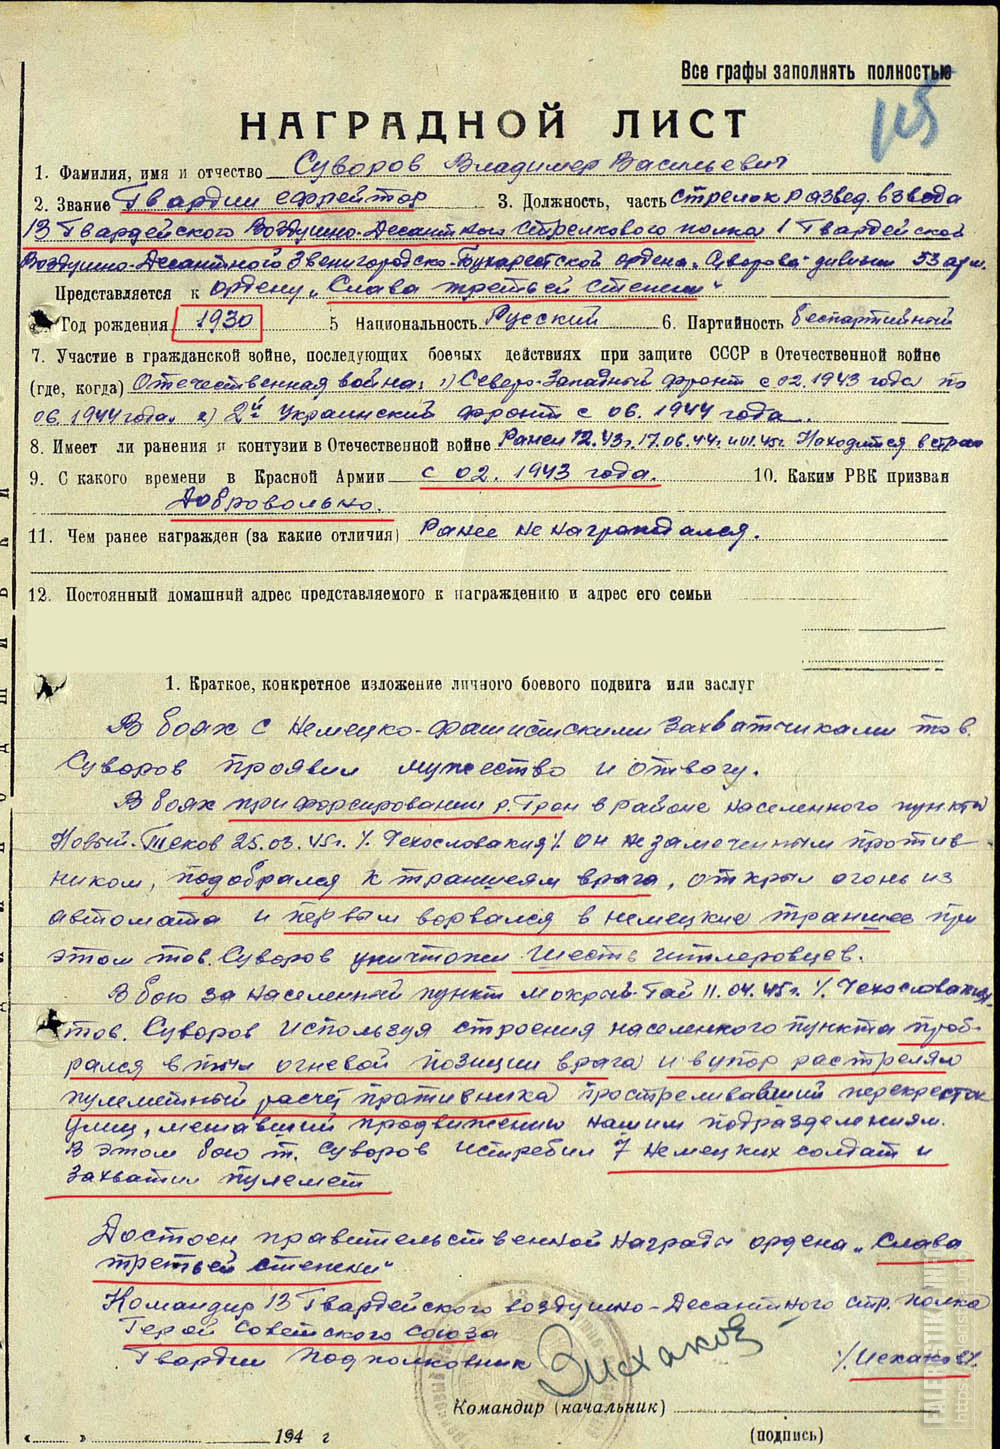 Все графы заполнять полностью
115
НАГРАДНОЙ ЛИСТ
1. Фамилия, имя и отчество Суворов Владимир Васильевич
2. Звание Гвардии ефрейтор 3. Должность, часть стрелок развед. взвода
13 Гвардейского Воздушно-Десантного стрелкового полка 1 Гвардейской
Воздушно-Десантного Звенигородско-Бухарестской ордена „Суворова" дивизии 53 арм.
Представляется к ордену „Слава третьей степени"
Год рождения 1930 5 Национальность Русский 6. Партийность беспартийный
7. Участие в гражданской войне, последующих боевых действиях при защите СССР в Отечественной войне
(где, когда) Отечественная война: 1) Северо-Западный фронт с 02.1943 года по
06.1944 года. 2) 2й Украинский фронт с 06.1944 года.
8. Имеет ли ранения и контузии в Отечественной войне Ранен 12.43г. 17.06.44г. и 01.45г. Находится в строю
9. С какого времени в Красной Армии с 02.1943 года. 10. Каким РВК призван
Добровольно.
11. Чем ранее награжден (за какие отличия) Ранее не награждался.
12. Постоянный домашний адрес представляемого к награждению и адрес его семьи
1. Краткое, конкретное изложение личного боевого подвига или заслуг
В боях с немецко-фашистскими захватчиками тов.
Суворов проявил мужество и отвагу.
В боях при форсировании р. Грон в районе населенного пункта
Новый-Теков 25.03.45г. /. Чехословакия/. он незамеченным против-
ником, подобрался к траншеям врага, открыл огонь из
автомата и первым ворвался в немецкие траншее при
этом тов. Суворов уничтожил шесть гитлеровцев.
В бою за населенный пункт Мокрый-Гай 11.04.45г. /. Чехословакия/.
тов. Суворов используя строения населенного пункта проб-
рался в тыл огневой позиции врага и в упор расстрелял
пулеметный расчет противника простреливавший перекресток
улиц, мешавший продвижению нашим подразделениям.
В этом бою т. Суворов истребил 7 немецких солдат и
захватил пулемет
Достоен правительственной награды ордена „Слава
третьей степени"
Командир 13 Гвардейского воздушно-Десантного стр. полка
Герой Советского Союза
Гвардии подполковник /. Исхаков/.
Командир (начальник)
«    »    194 г (подпись)
FALERISTIKA.INFO